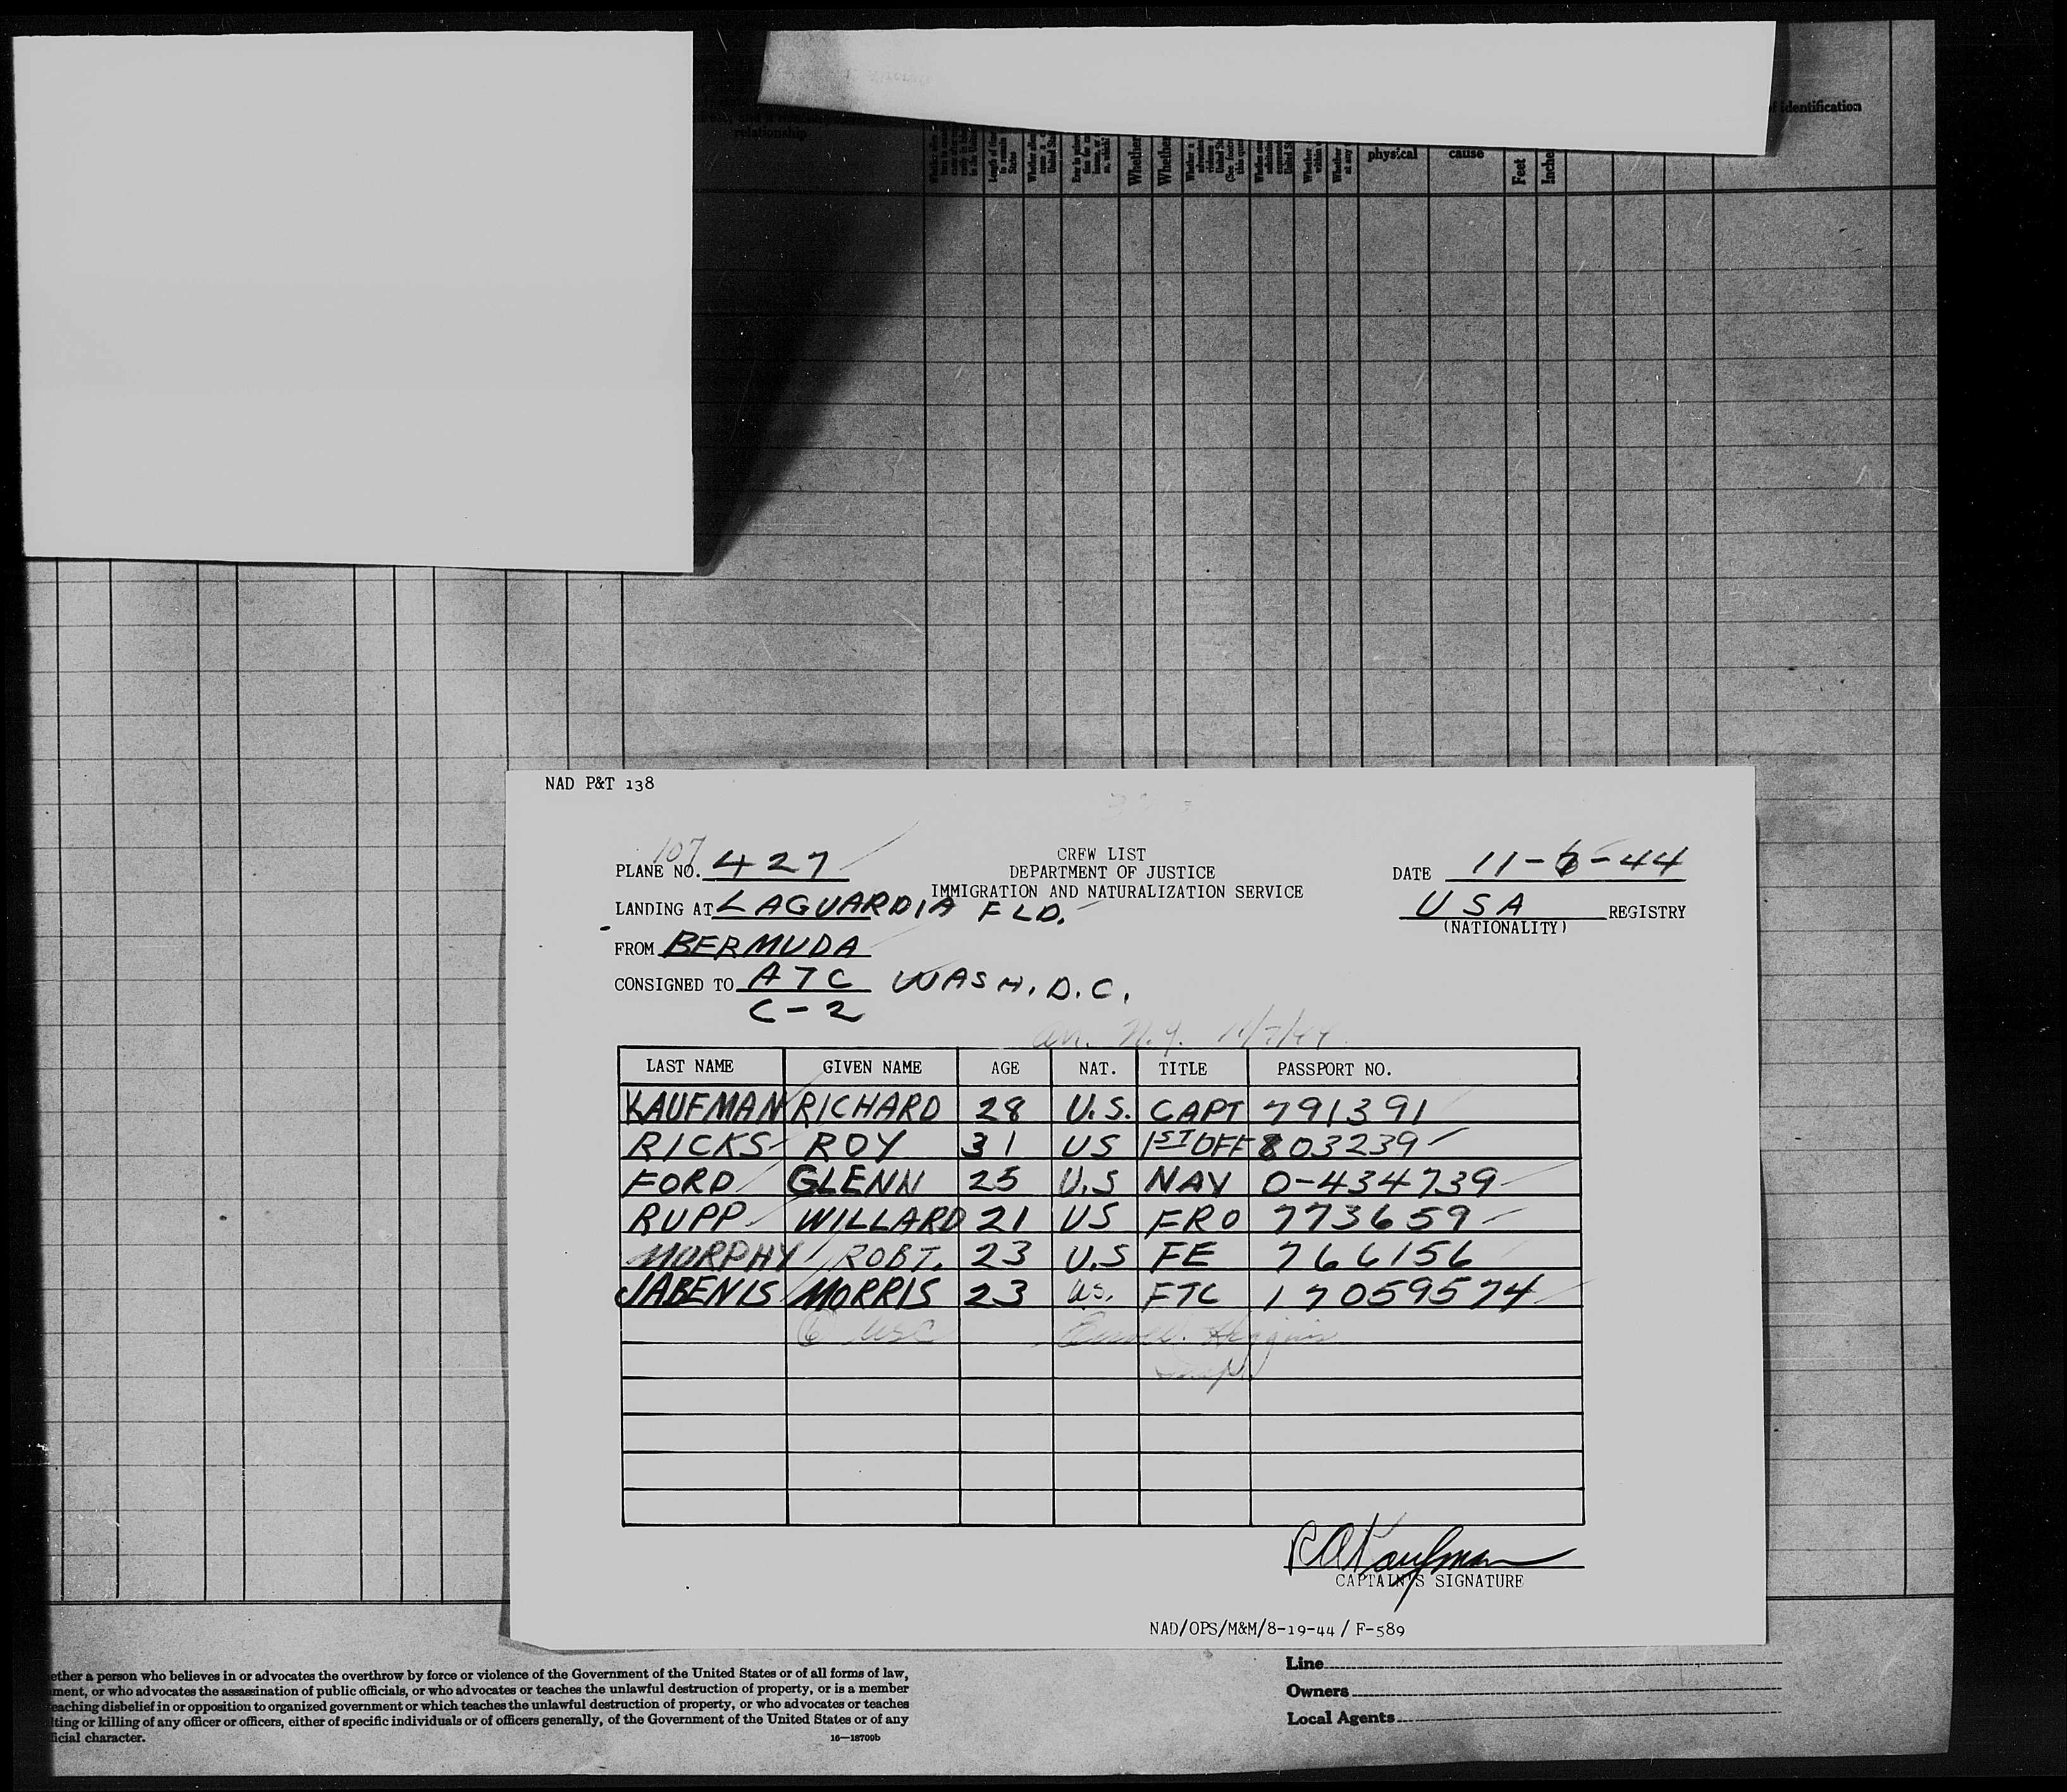 relationship
of identification
physical
cause
Whether
Whether
Feet
Inche
NAD P&T 138
107
PLANE NO. 427
CREW LIST
DEPARTMENT OF JUSTICE
IMMIGRATION AND NATURALIZATION SERVICE
DATE 11-6-44
LANDING AT LAGUARDIA FLD.
USA REGISTRY
(NATIONALITY)
FROM BERMUDA
CONSIGNED TO ATC WASH. D.C.
C-2
Arr. N.Y. 11/7/44
LAST NAME GIVEN NAME AGE NAT. TITLE PASSPORT NO.
KAUFMAN RICHARD 28 U.S. CAPT 791391
RICKS ROY 31 US 1ST OFF 803239
FORD GLENN 25 U.S NAV O-434739
RUPP WILLARD 21 US FRO 773659
MURPHY ROBT. 23 U.S FE 766156
JABENIS MORRIS 23 US. FTC 17059574
6 USC
R A Kaufman
CAPTAIN'S SIGNATURE
NAD/OPS/M&M/8-19-44/ F-589
ether a person who believes in or advocates the overthrow by force or violence of the Government of the United States or of all forms of law,
ment, or who advocates the assassination of public officials, or who advocates or teaches the unlawful destruction of property, or is a member
eaching disbelief in or opposition to organized government or which teaches the unlawful destruction of property, or who advocates or teaches
lting or killing of any officer or officers, either of specific individuals or of officers generally, of the Government of the United States or of any
ficial character.
16—18709b
Line
Owners
Local Agents